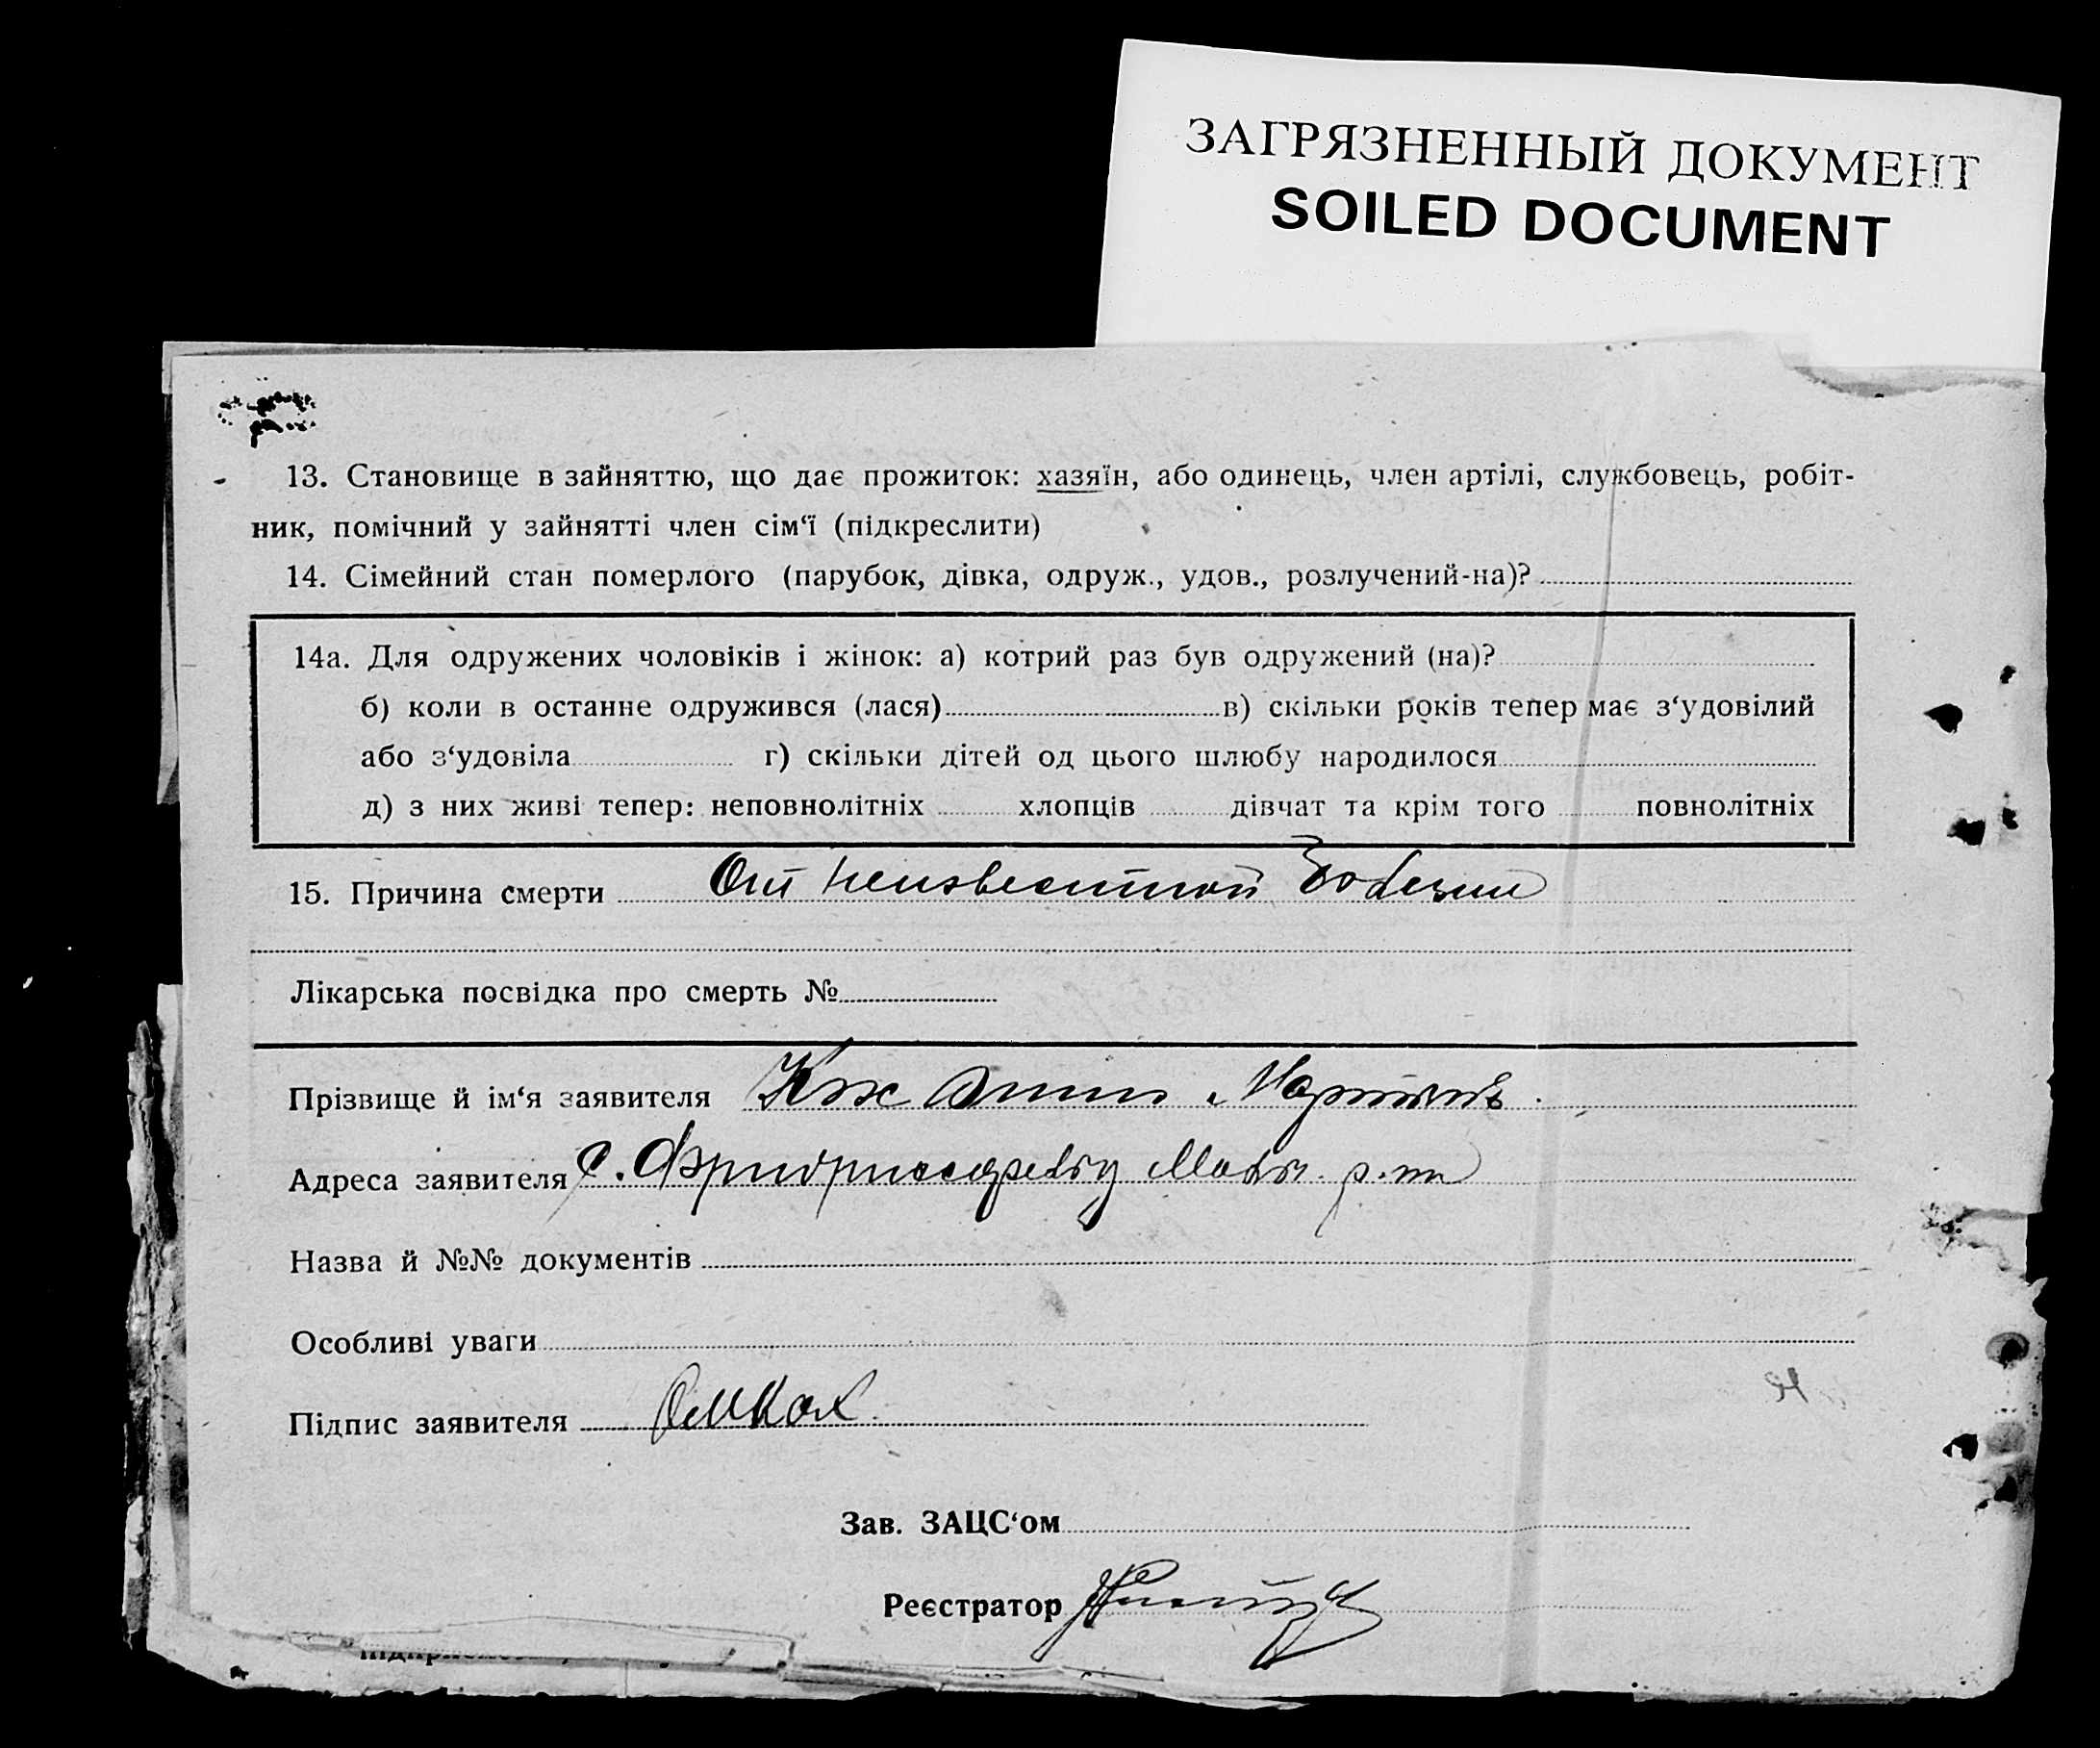 ЗАГРЯЗНЕННЫЙ ДОКУМЕНТ
SOILED DOCUMENT
13. Становище в зайняттю, що дає прожиток: хазяїн, або одинець, член артілі, службовець, робіт-
ник, помічний у зайнятті член сім‘ї (підкреслити)
14. Сімейний стан померлого (парубок, дівка, одруж., удов., розлучений-на)?
14а. Для одружених чоловіків і жінок: а) котрий раз був одружений (на)?
б) коли в останне одружився (лася) в) скільки років тепер має з‘удовілий
або з‘удовіла г) скільки дітей од цього шлюбу народилося
д) з них живі тепер: неповнолітніх хлопців дівчат та крім того повнолітніх
15. Причина смерти От неизвестной болезни
Лікарська посвідка про смерть №
Прізвище й ім‘я заявителя Кох
Адреса заявителя с.
Назва й №№ документів
Особливі уваги
Підпис заявителя
Зав. ЗАЦС‘ом
Реєстратор